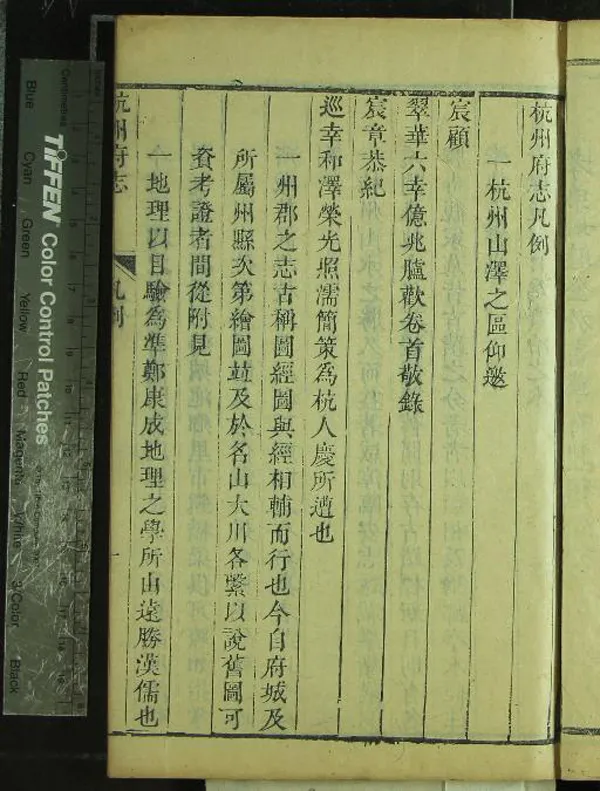 杭州府志凡例
一杭州山澤之區仰邀
宸顧
翠華六幸億兆臚歡卷首敬錄
宸章恭紀
巡幸和澤榮光照濡簡策為杭人慶所遭也
一州郡之志古稱圖經圖與經相輔而行也今自府城及
所屬州縣次第繪圖竝及於名山大川各繫以說舊圖可
資考證者間從附見
一地理以目驗為準鄭康成地理之學所山遠勝漢儒也
杭州府志
凡例
一
Centimetres
TIFFEN Color Control Patches
Blue
Cyan
Green
Yellow
Red
Magenta
White
3/Color
Black